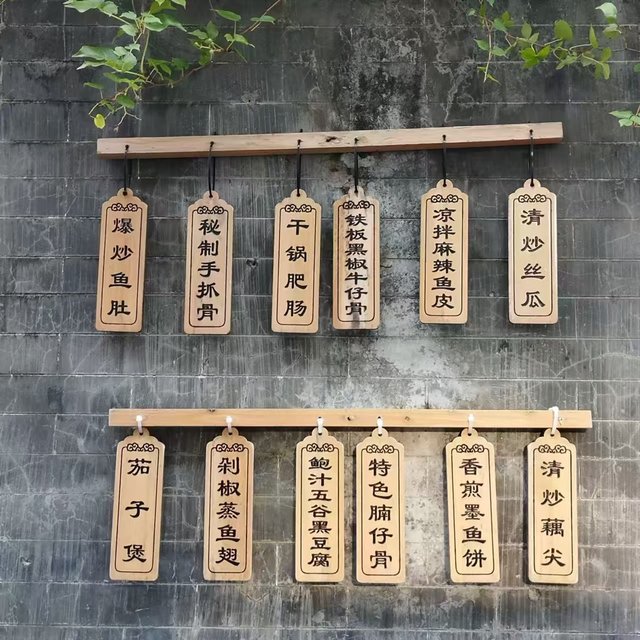 爆炒鱼肚
秘制手抓骨
干锅肥肠
铁板黑椒牛仔骨
凉拌麻辣鱼皮
清炒丝瓜
茄子煲
剁椒蒸鱼翅
鲍汁五谷黑豆腐
特色腩仔骨
香煎墨鱼饼
清炒藕尖